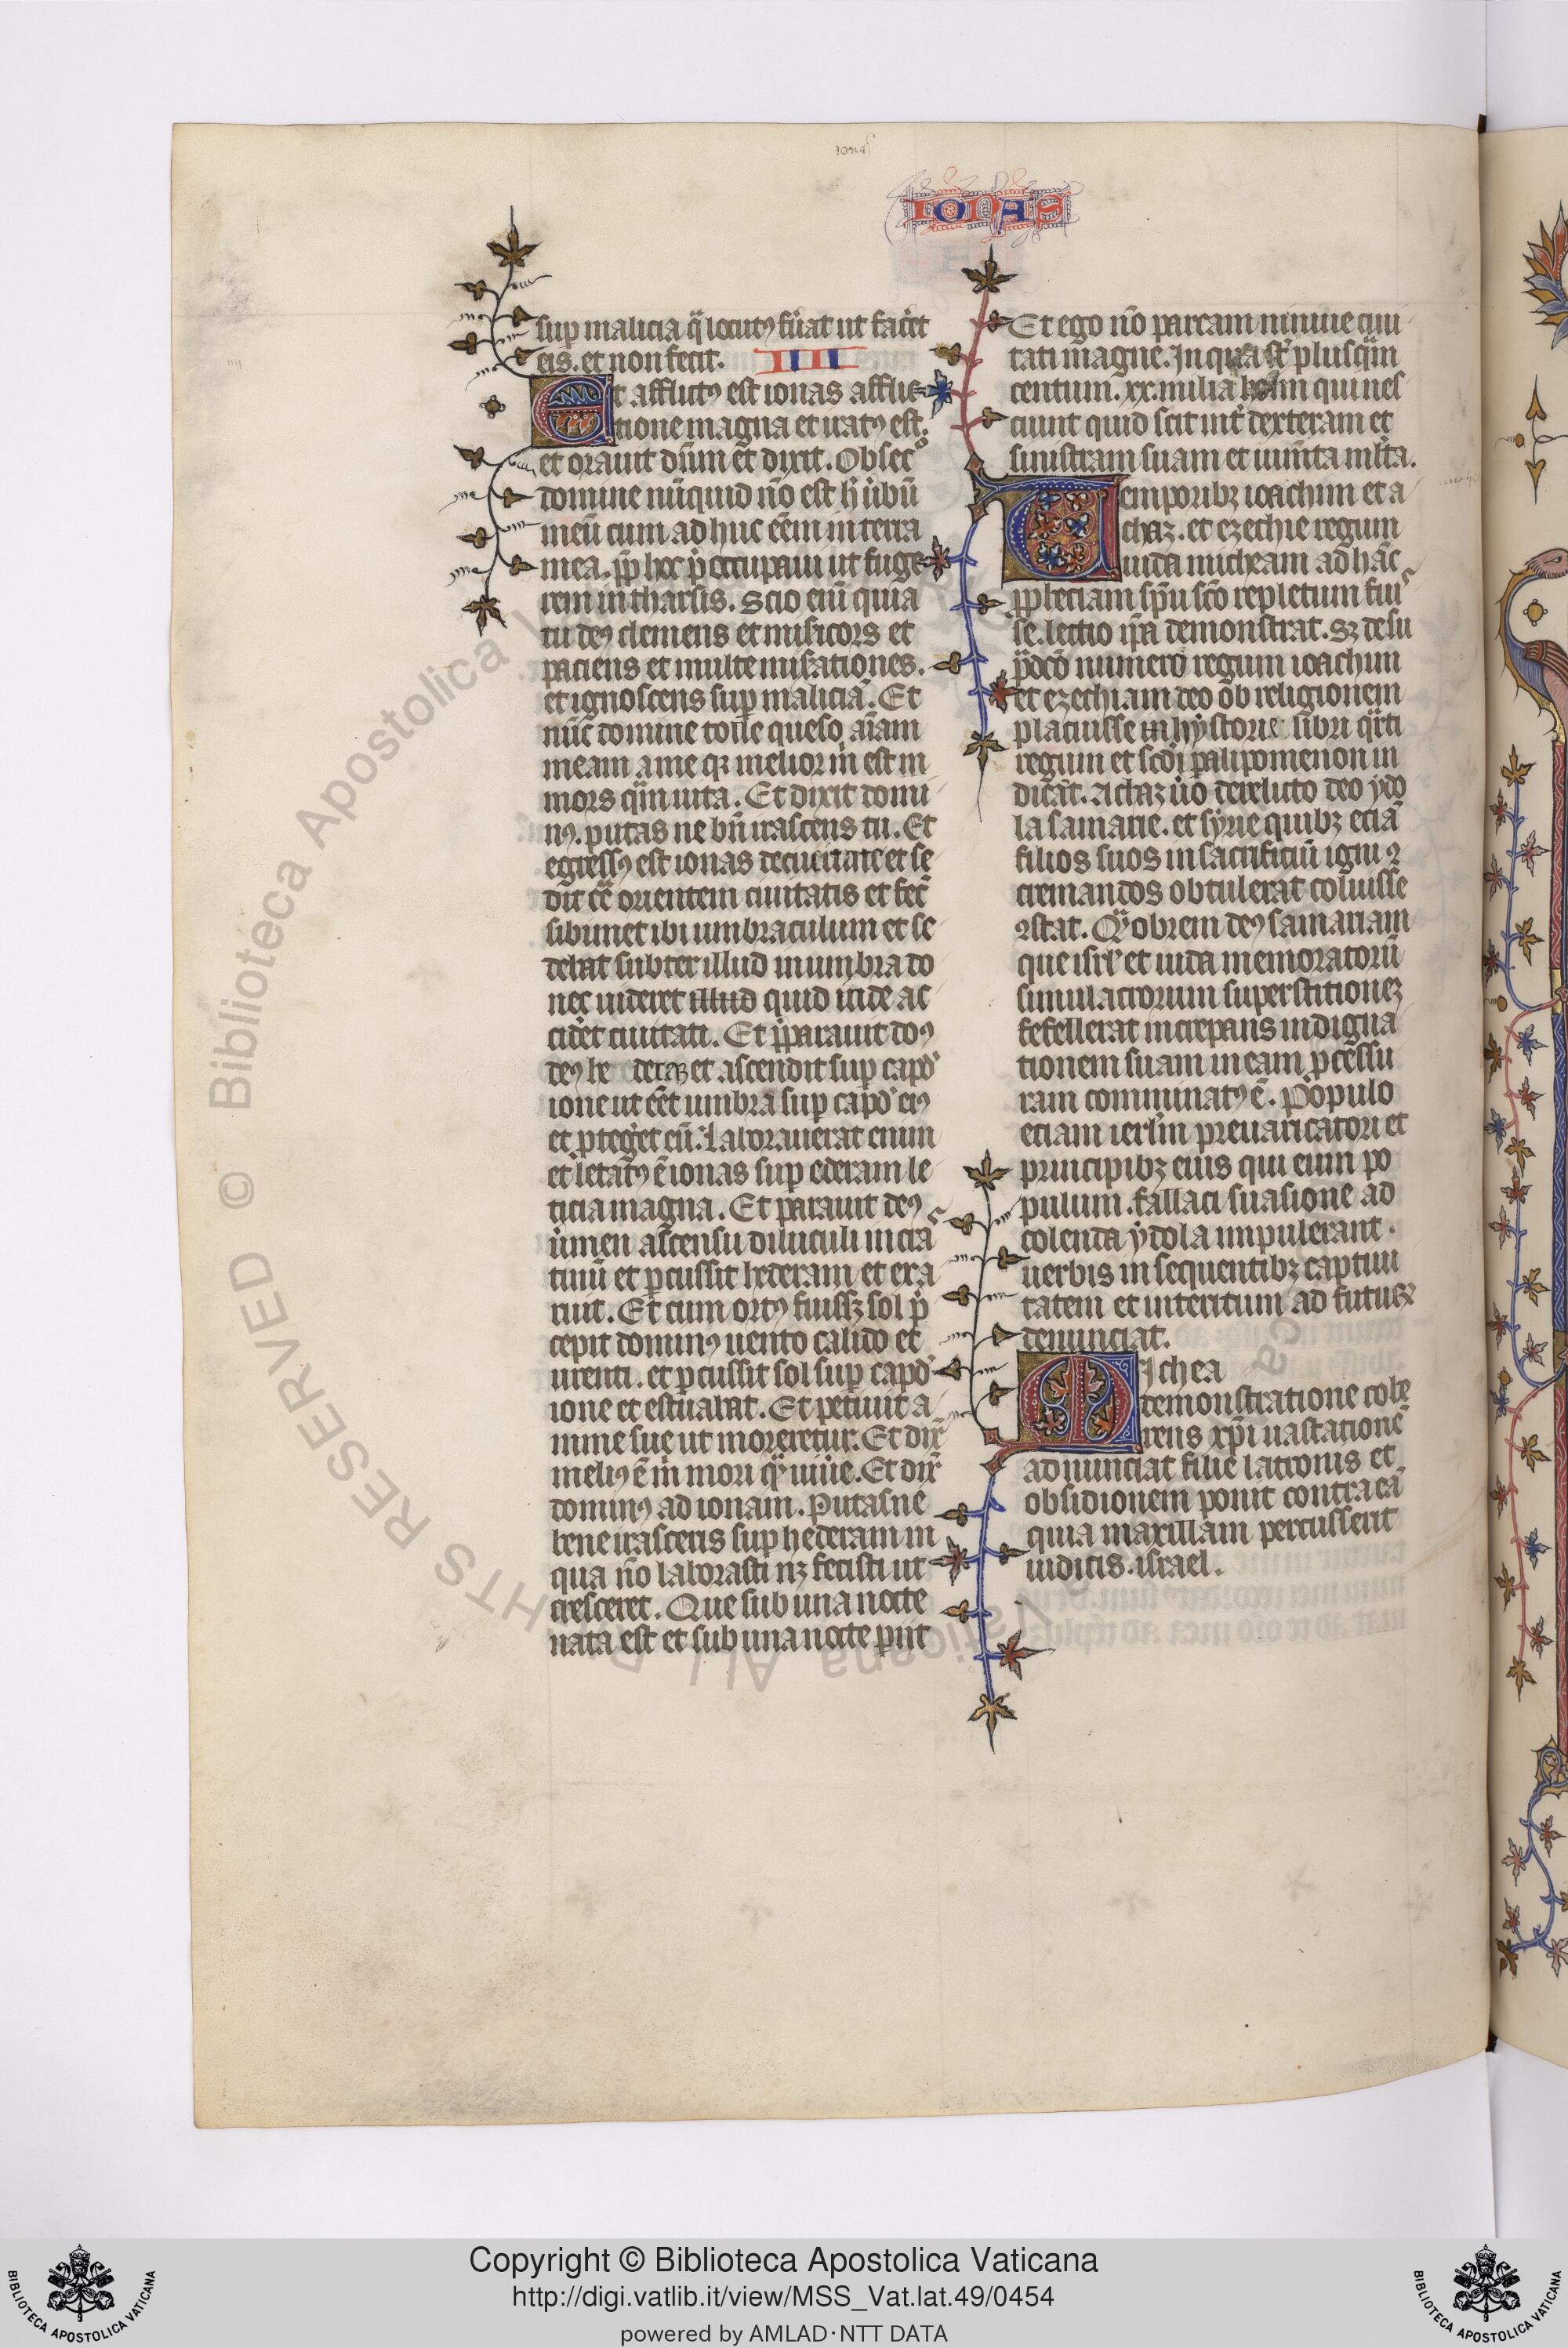 ionas
IONAS
sup malicia q̈ locutꝰ fu̾at ut facet
eis. et non fecit. IIII
Et afflictꝰ est ionas afflic
tione magna et iratꝰ est.
et orauit dn̄m et̄ dixit. Obsecº
domine nūquid nō est h̾ ú̾bū
meū cum ad huc eēm in terra
mea. ꝓp̄ hoc p̾occupaui ut fuge
rem in tharsis. Scio enī quia
tu deꝰ clemens et misicors et
paciens et multe misationes.
et ignoscens sup maliciā. Et
nūc domine tolle queso aīam
meam a me qꝫ melior m̄ est m
mors q̈m uita. Et dixit domi
nꝰ. putas ne bn̄ irasceris tu. Et
egressꝰ est ionas de ciuitate et se
dit c̄ orientem ciuitatis et fec̄
sibimet ibi umbraculum et se
debat subter illud in umbra do
nec uideret illud quid icide ac
cidet ciuitati. Et p̄parauit dosꝰ
deꝰ he deram et ascendit sup capᵈ
ione ut eēt umbra sup capᵈ eiꝰ
et ꝓteget eū. laborauerat enim
et letatꝰ ē ionas sup ederam le
ticia magna. Et parauit deꝰ
u̾men ascensu diluculi in cras
tinū et ꝑcussit hederam et exa
ruit. Et cum ortꝰ fuissꝫ sol p̾
cepit dominꝰ uento calido et
urenti. et ꝑcussit sol sup capᵈ
ione et estuabat. Et petiuit a
nime sue ut moreretur. Et dix̄
meliꝰ ē m̄ mori q̈ uiu̾e. Et dix̄
dominꝰ ad ionam. Putas ne
bene irasceris sup hederam in
qua nō laborasti nꝫ fecisti ut
cresceret. Que sub una nocte
nata est et sub una nocte ꝑiit
Et ego nō parcam niniue ciui
tati magne. In qua st̄ plusq̈m
centum. xx. milia hoīm qui nes
ciunt quid scit int̾ dexteram et
sinistram suam et iumēta ml̄ta.
Temporibꝫ ioachim et a
chaz. et ezechie regum
iuda micheam ad hāc
ꝓphetiam sp̄u sc̄o repletum fuis
se. lectio ip̄a demonstrat. Sꝫ de su
p̾dc̄o numero regum ioachim
et ezechiam deo ob religionem
placuisse in hystorie libri q̈rti
regum et scdi paralipomenon in
dicāt. Achaz ú̾o derelicto deo ydo
la samarie. et syrie quibꝫ eciā
filios suos in sacrificiū igni ꝯ
cremandos obtulerat coluisse
ꝯstat. Q̈obrem deꝰ samariam
que isrl̄ et iuda memoratorū
simulacrorum superstitionez
fefellerat increpans indigna
tionem suam in eam ꝓcessu
ram comminatꝰ ē. Populo
etiam ierl̄m preuaricatori et
principibꝫ eius qui eum po
pulum. fallaci suasione ad
colenda ydola impulerant.
uerbis in sequentibꝫ captiui
tatem et interitum ad futuꝝ
denunciat.
Michea
demonstratione cohe
rens xp̄i uastationē
adnunciat filie latronis et
obsidionem ponit contra eā
quia maxillam percusserit
iudicis. israel.
© Biblioteca Apostolica Vaticana ALL RIGHTS RESERVED
Copyright © Biblioteca Apostolica Vaticana
http://digi.vatlib.it/view/MSS_Vat.lat.49/0454
powered by AMLAD·NTT DATA
BIBLIOTECA APOSTOLICA VATICANA
BIBLIOTECA APOSTOLICA VATICANA